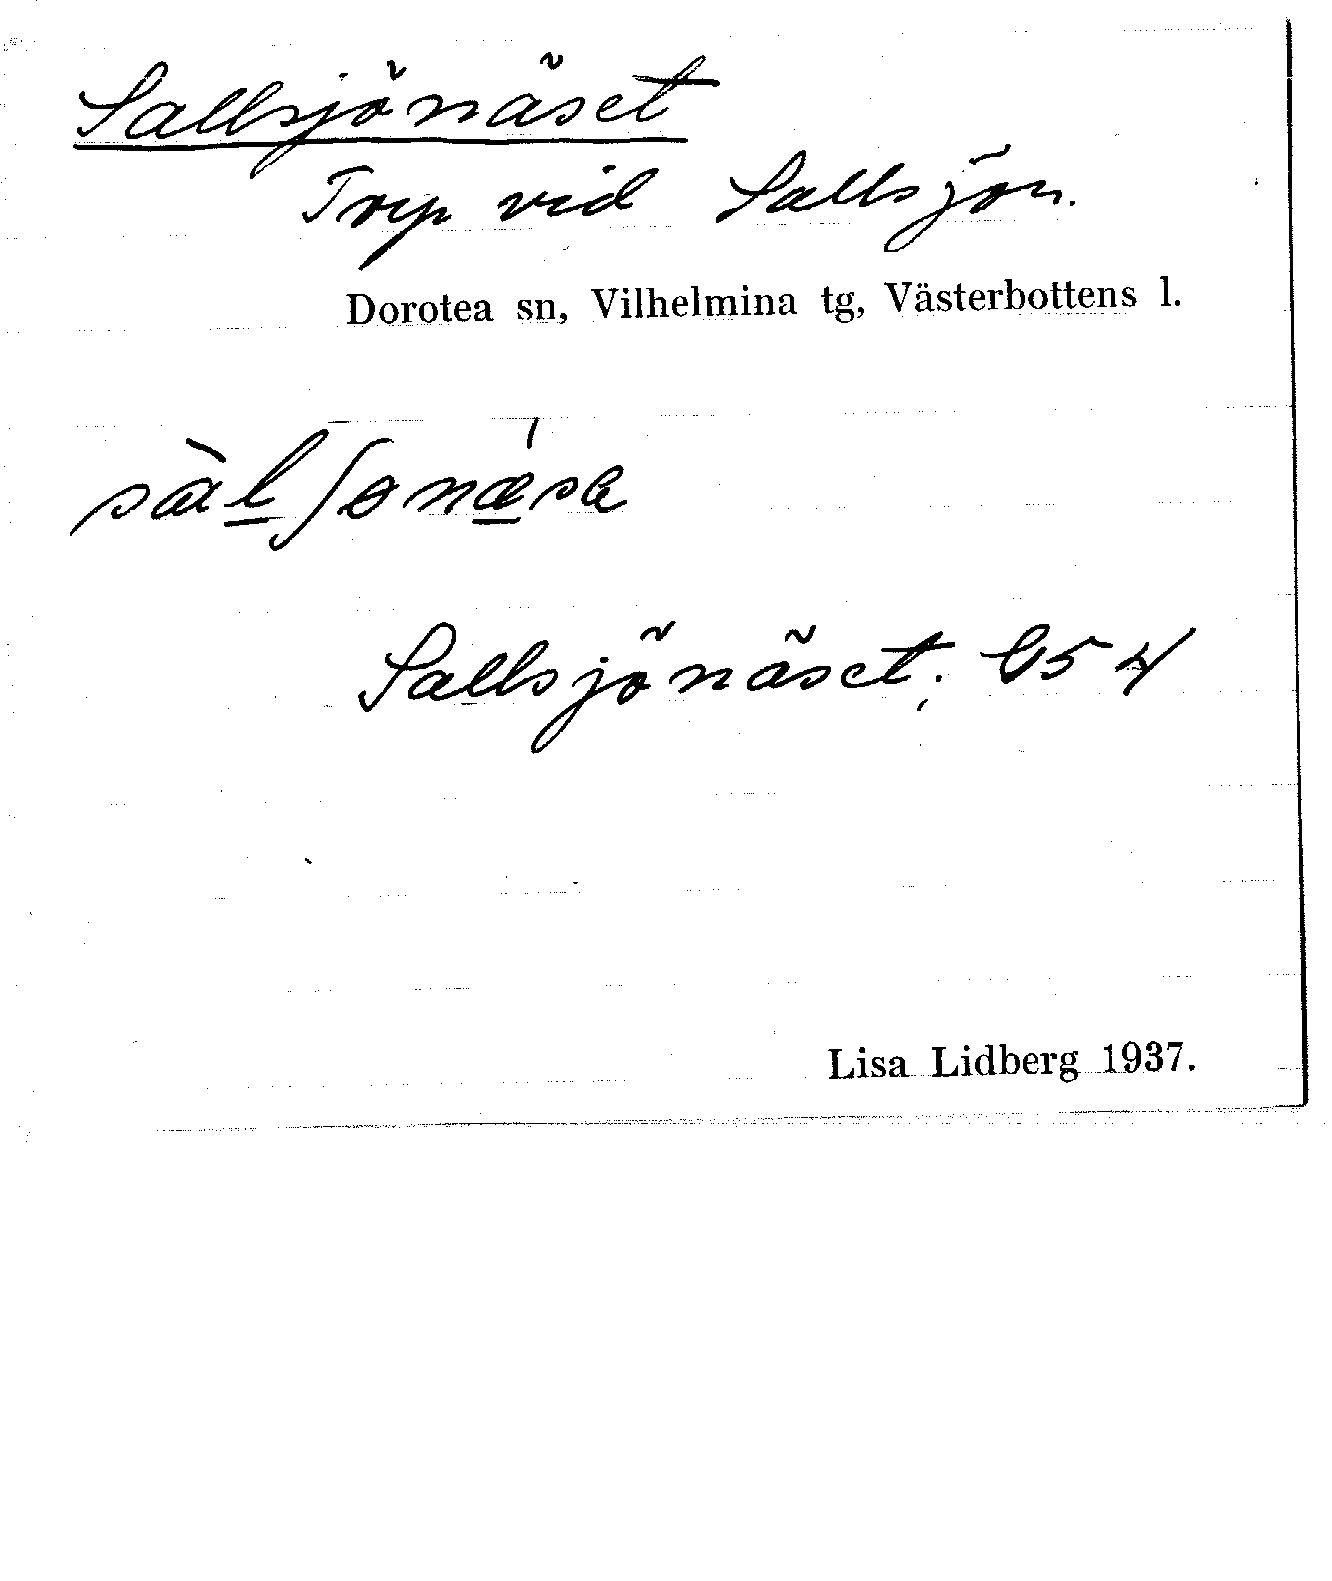 Sallsjönäset
Trp vid Sallsjön.
Dorotea sn, Vilhelmina tg, Västerbottens l.
sàl̲ʃɵnǽ̲sa
Sallsjönäset; G54
Lisa Lidberg 1937.